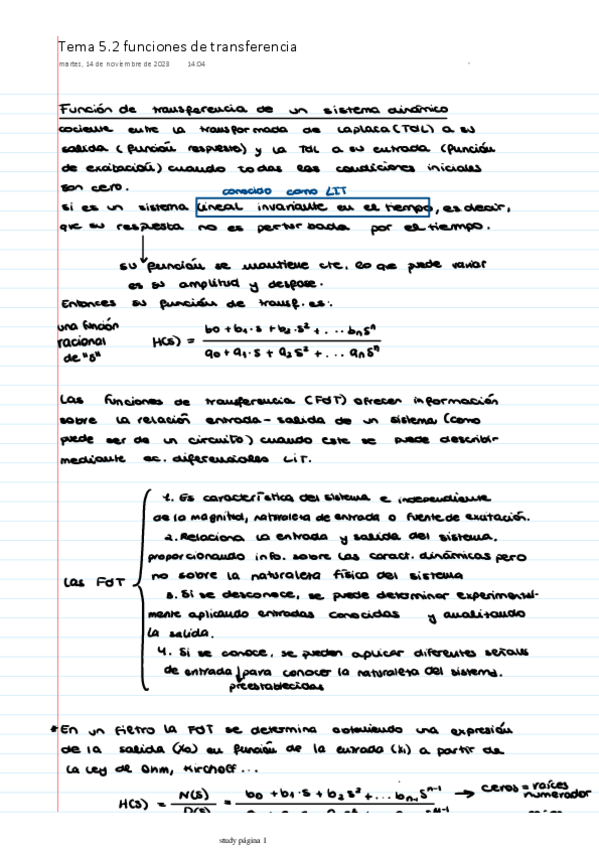 Tema 5.2 funciones de transferencia
martes, 14 de noviembre de 2023 14:04
Función de transferencia de un sistema dinámico
cociente entre la transformada de Laplace (TdL) a su
salida (función respuesta) y la TdL a su entrada (función
de excitación) cuando todas las condiciones iniciales
son cero.
conocido como LIT
si es un sistema lineal invariante en el tiempo, es decir,
que su respuesta no es perturbada por el tiempo.
su función se mantiene cte, lo que puede variar
es su amplitud y desfase.
Entonces su función de transf. es:
una función racional de "s"
H(s) = b0 + b1·s + b2·s² + ... bnsⁿ / a0 + a1·s + a2s² + ... ansⁿ
Las funciones de transferencia (FdT) ofrecen información
sobre la relación entrada-salida de un sistema (como
puede ser de un circuito) cuando este se puede describir
mediante ec. diferenciales LIT.
Las FdT
1. Es característica del sistema e independiente
de la magnitud, naturaleza de entrada o fuente de excitación.
2. Relaciona la entrada y salida del sistema,
proporcionando info. sobre las caract. dinámicas pero
no sobre la naturaleza física del sistema
3. Si se desconoce, se puede determinar experimental-
mente aplicando entradas conocidas y analizando
la salida.
4. Si se conoce, se pueden aplicar diferentes señales
de entrada para conocer la naturaleza del sistema.
preestablecidas
*En un filtro la FdT se determina obteniendo una expresión
de la salida (Xo) en función de la entrada (Xi) a partir de
la Ley de Ohm, Kirchoff...
H(s) = N(s) / D(s) = b0 + b1·s + b2s² + ... bn-1sⁿ⁻¹ → ceros = raíces numerador
study página 1